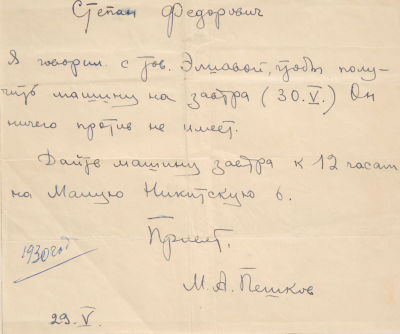 Степан Федорович
Я говорил с тов. Элиавой, чтобы полу-
чить машину на завтра (30.V.) Он
ничего против не имеет.
Дайте машину завтра к 12 часам
на Малую Никитскую 6.
Привет.
1930 год
М.А. Пешков
29.V.